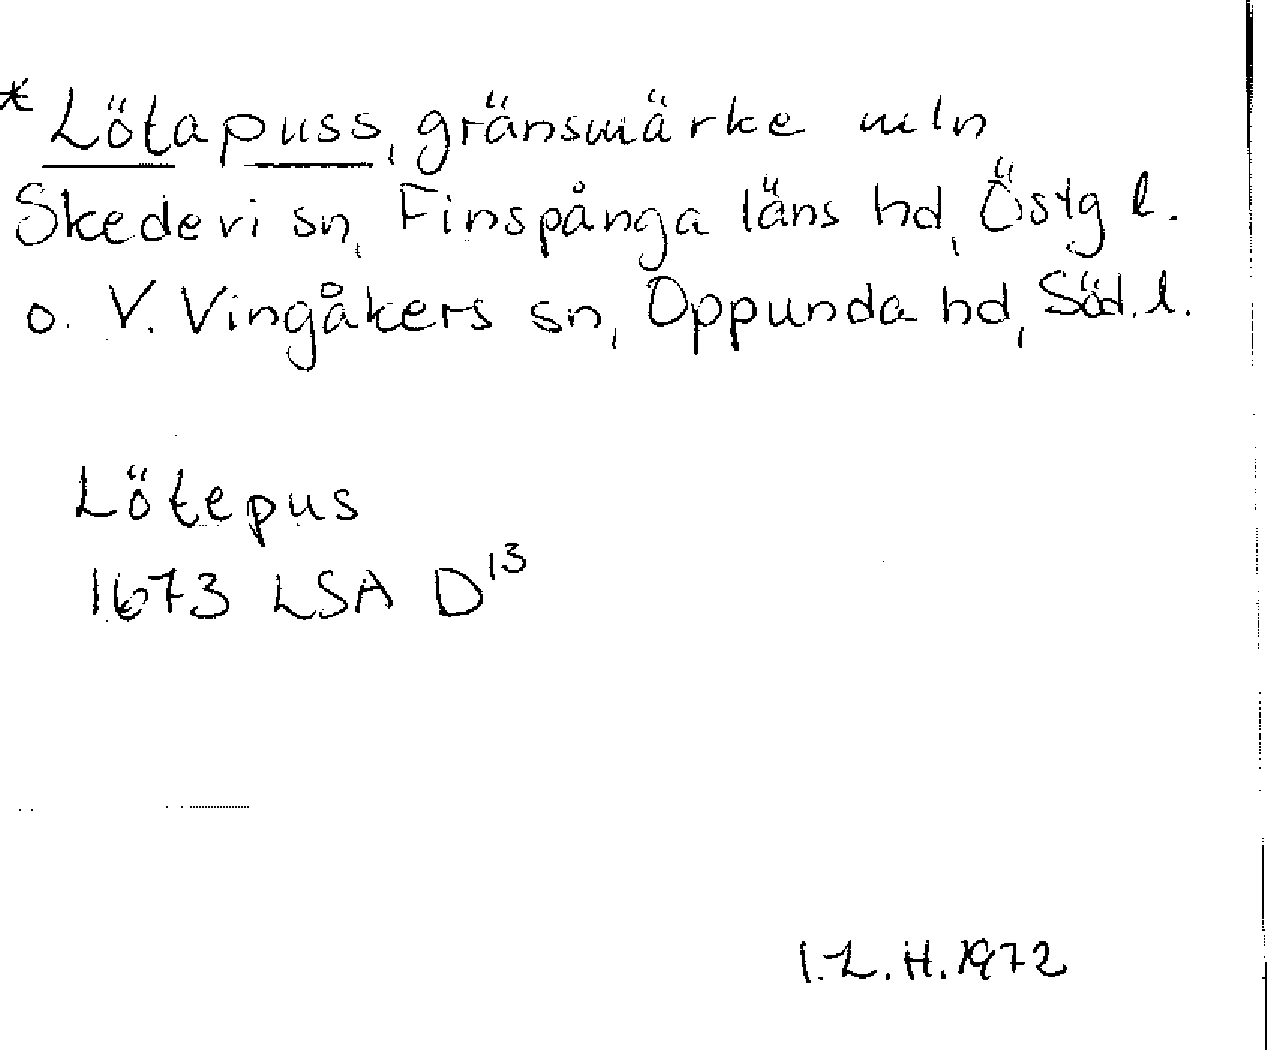 *Lötapuss, gränsmärke mln
Skederi sn, Finspånga läns hd, Östg l.
o. V. Vingåkers sn, Oppunda hd, Söd. l.
Lötepus
1673 LSA D¹³
I.L.H. 1972